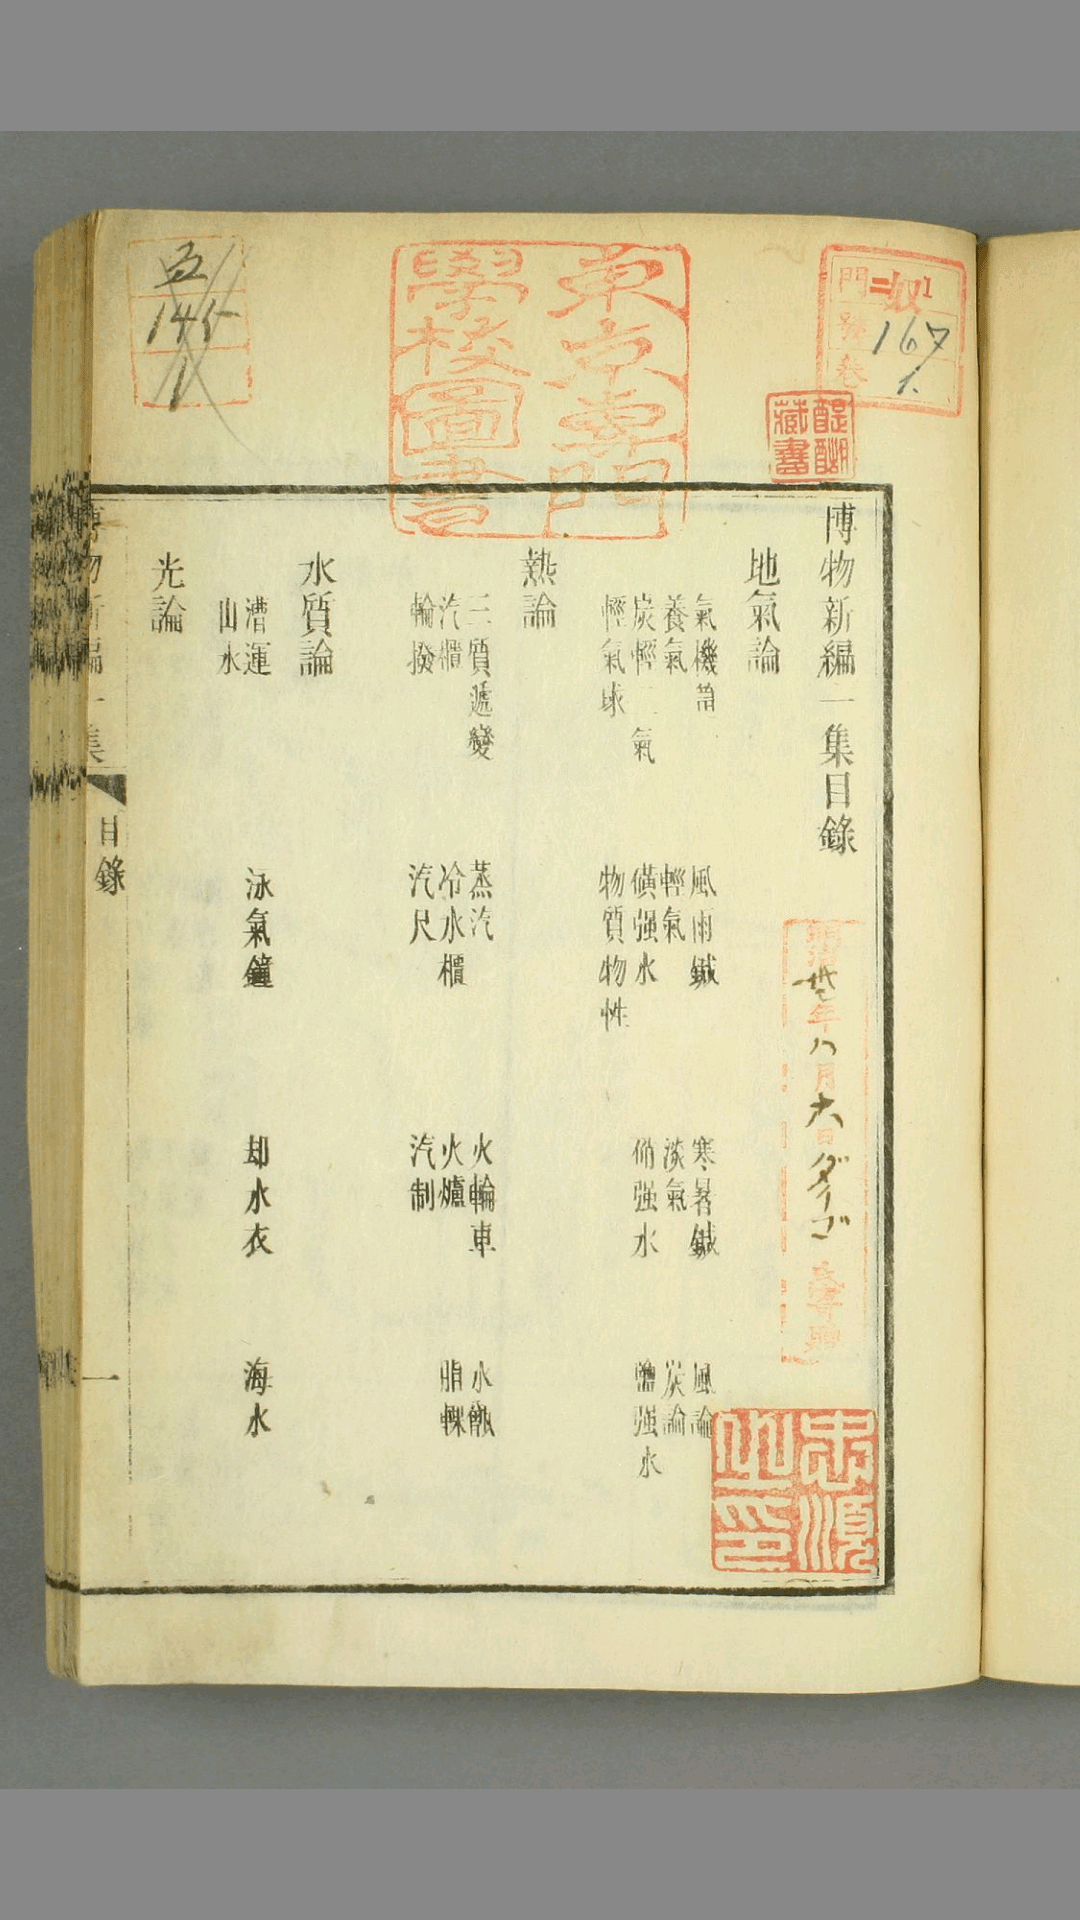 博物新編一集目錄
地氣論
氣機筩　風雨鍼　寒暑鍼　風論
養氣　輕氣　淡氣　炭論
炭輕二氣　磺强水　硝强水　鹽强水
輕氣球　物質物性
熱論
三質遞變　蒸汽　火輪車　水甑
汽櫃　冷水櫃　火爐
輪撥　汽尺　汽制
水質論
漕運　泳氣鐘　却水衣　海水
山水
光論
目錄
一
東京專門
學校圖書
門
號
卷
167
1.
醍醐
藏書
年八月六日ダイゴ
忠順
之印
145
1